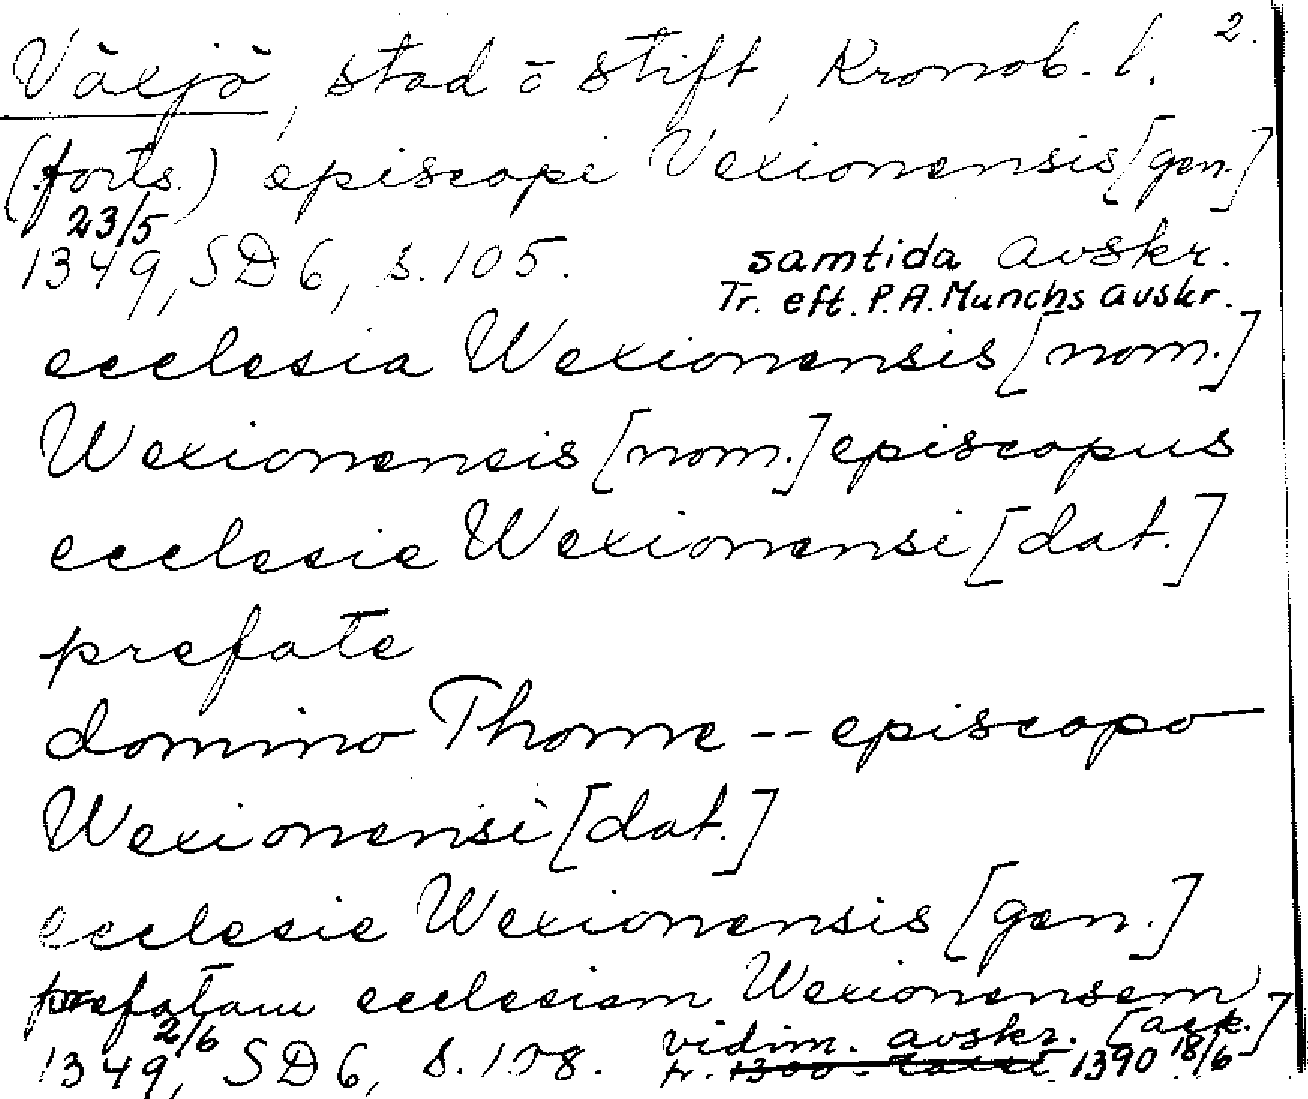 2.
Växjö, stad o stift, Kronob. l.
(forts.) episcopi Vexionensis [gen.]
23/5
1349, SD 6, s. 105. samtida avskr.
Tr. eft. P.A. Munchs avskr.
ecclesia Wexionensis [nom.]
Wexionensis [nom.] episcopus
ecclesie Wexionensi [dat.]
prefate
domino Thome -- episcopo
Wexionensi [dat.]
ecclesie Wexionensis [gen.]
prefatam ecclesiam Wexionensem
2/6 vidim. avskr. [ack.]
1349, SD 6, s. 108. tr. 1300-talet 1390 18/6